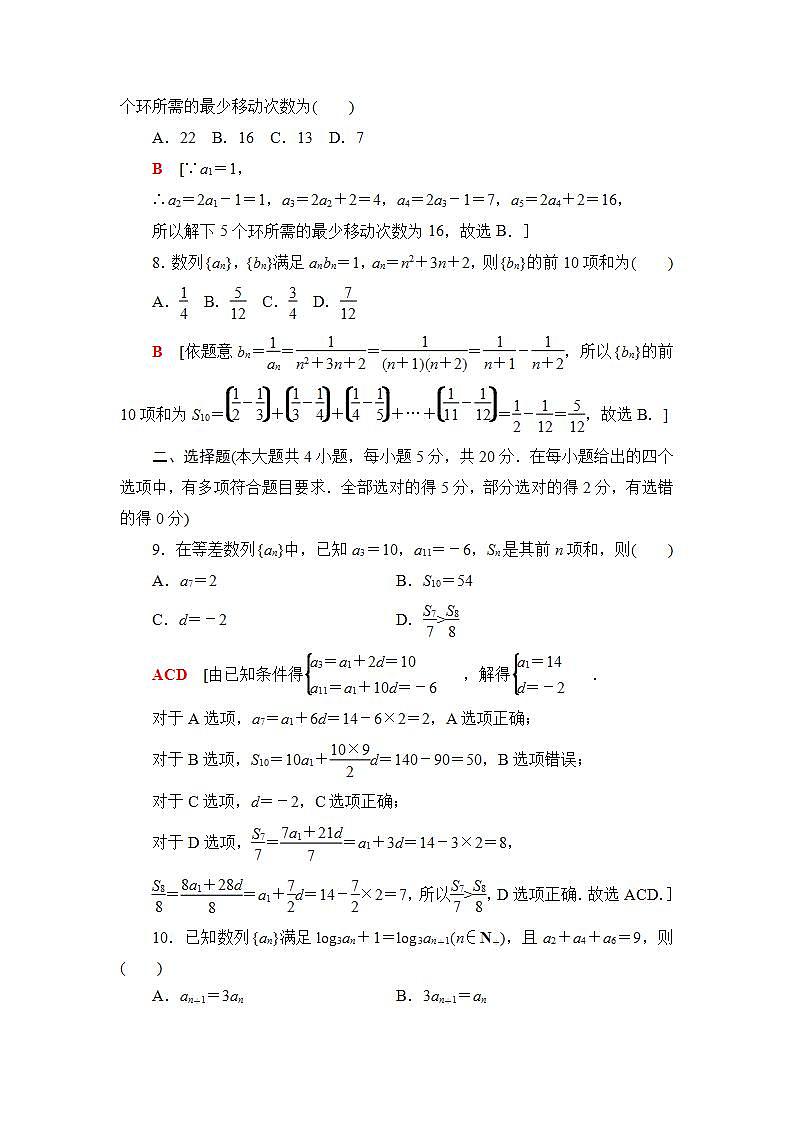 个环所需的最少移动次数为(　　)
A．22　B．16　C．13　D．7
B　[∵a1＝1，
∴a2＝2a1－1＝1，a3＝2a2＋2＝4，a4＝2a3－1＝7，a5＝2a4＋2＝16，
所以解下 5 个环所需的最少移动次数为 16，故选 B．]
8．数列{an}，{bn}满足 anbn＝1，an＝n²＋3n＋2，则{bn}的前 10 项和为(　　)
A．1/4　B．5/12　C．3/4　D．7/12
B　[依题意 bn＝1/an＝1/(n²＋3n＋2)＝1/((n＋1)(n＋2))＝1/(n＋1)－1/(n＋2)，所以{bn}的前
10 项和为 S10＝(1/2－1/3)＋(1/3－1/4)＋(1/4－1/5)＋…＋(1/11－1/12)＝1/2－1/12＝5/12，故选 B．]
二、选择题(本大题共 4 小题，每小题 5 分，共 20 分．在每小题给出的四个
选项中，有多项符合题目要求．全部选对的得 5 分，部分选对的得 2 分，有选错
的得 0 分)
9．在等差数列{an}中，已知 a3＝10，a11＝－6，Sn 是其前 n 项和，则(　　)
A．a7＝2　B．S10＝54
C．d＝－2　D．S7/7>S8/8
ACD　[由已知条件得{a3＝a1＋2d＝10 a11＝a1＋10d＝－6，解得{a1＝14 d＝－2．
对于 A 选项，a7＝a1＋6d＝14－6×2＝2，A 选项正确；
对于 B 选项，S10＝10a1＋10×9/2d＝140－90＝50，B 选项错误；
对于 C 选项，d＝－2，C 选项正确；
对于 D 选项，S7/7＝(7a1＋21d)/7＝a1＋3d＝14－3×2＝8，
S8/8＝(8a1＋28d)/8＝a1＋7/2d＝14－7/2×2＝7，所以S7/7>S8/8，D 选项正确．故选 ACD．]
10．已知数列{an}满足 log3an＋1＝log3an＋1(n∈N＋)，且 a2＋a4＋a6＝9，则
(　　)
A．an＋1＝3an　B．3an＋1＝an